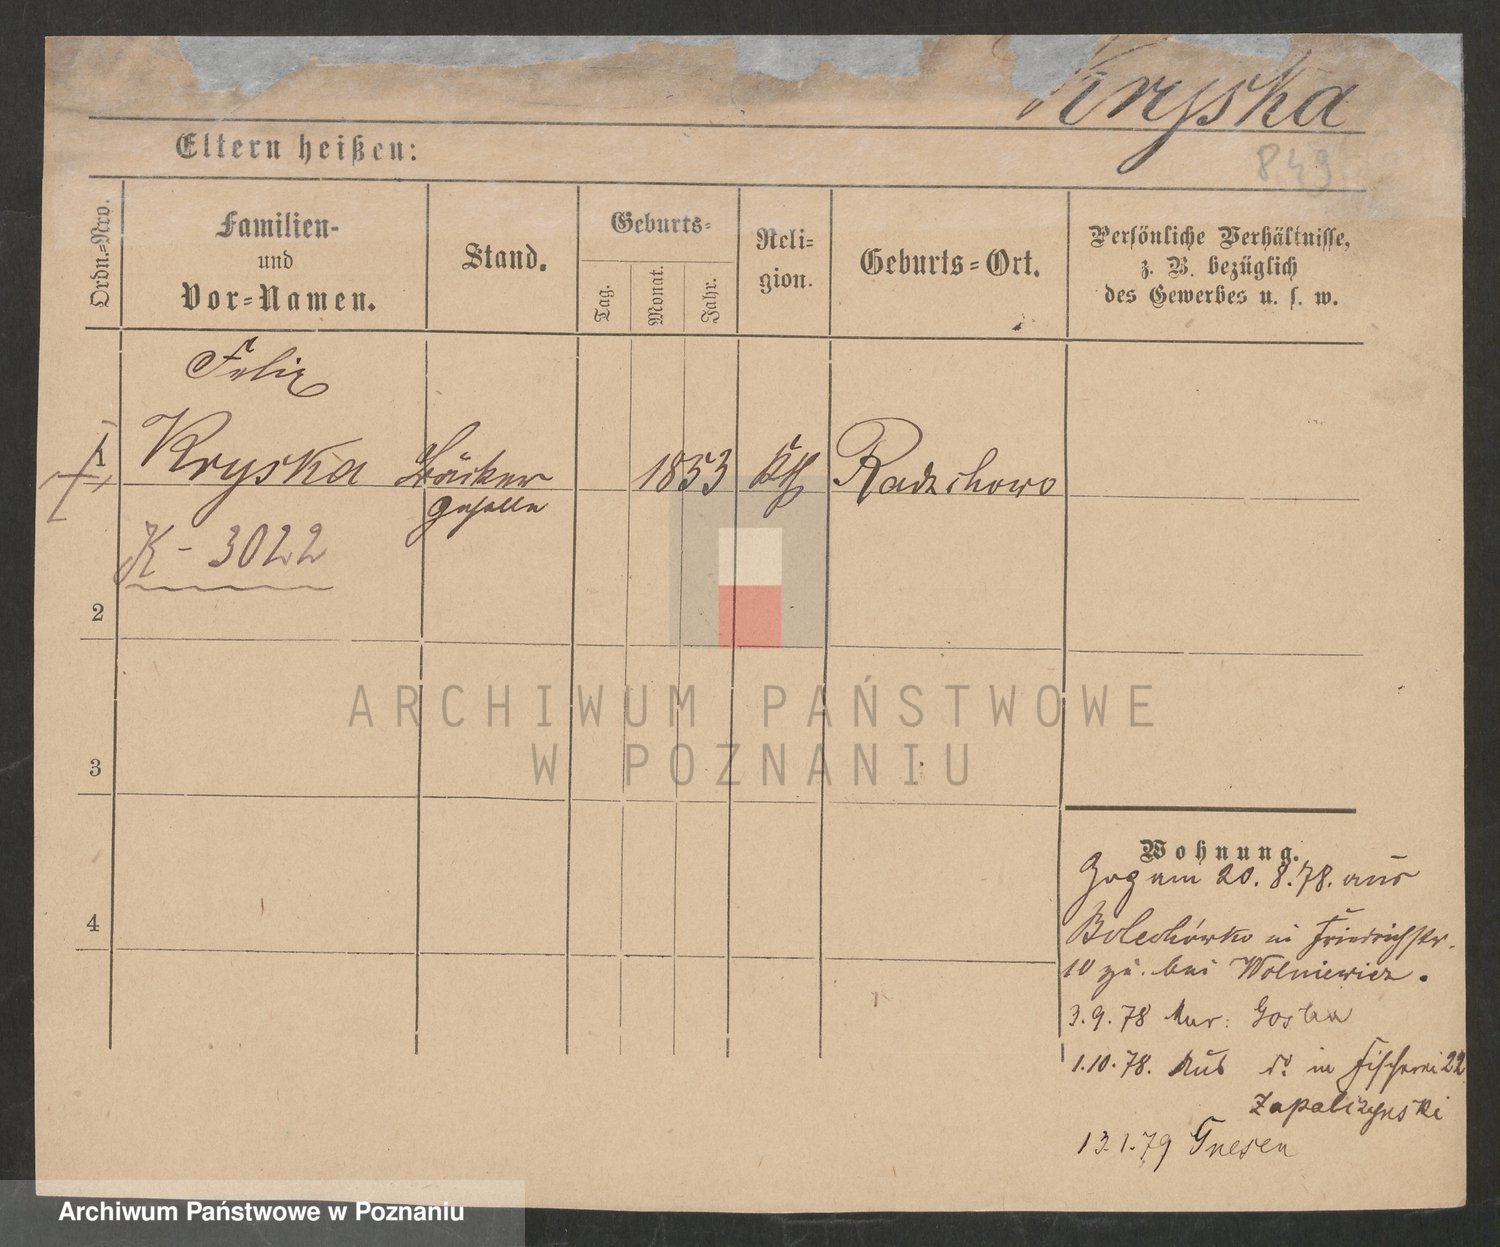 Kryska
Eltern heißen:
8.49
Ordn.=Nro.
Familien-
und
Vor=Namen.
Stand.
Geburts=
Tag.
Monat.
Jahr.
Reli=
gion.
Geburts=Ort.
Persönliche Verhältnisse,
z. B. bezüglich
des Gewerbes u. s. w.
Felix
1 Kryska Bäcker 1853 kth Radzchowo
geselle
K - 3022
2
3
4
Wohnung.
Zog am 20. 8. 78. aus
Bolechówko in Friedrichstr.
10 zu. bei Wolniewicz.
3. 9. 78
1. 10. 78. Aus do. in Fischerei 22
Zapalczynski
13. 1. 79 Gnesen
ARCHIWUM PAŃSTWOWE
W POZNANIU
Archiwum Państwowe w Poznaniu